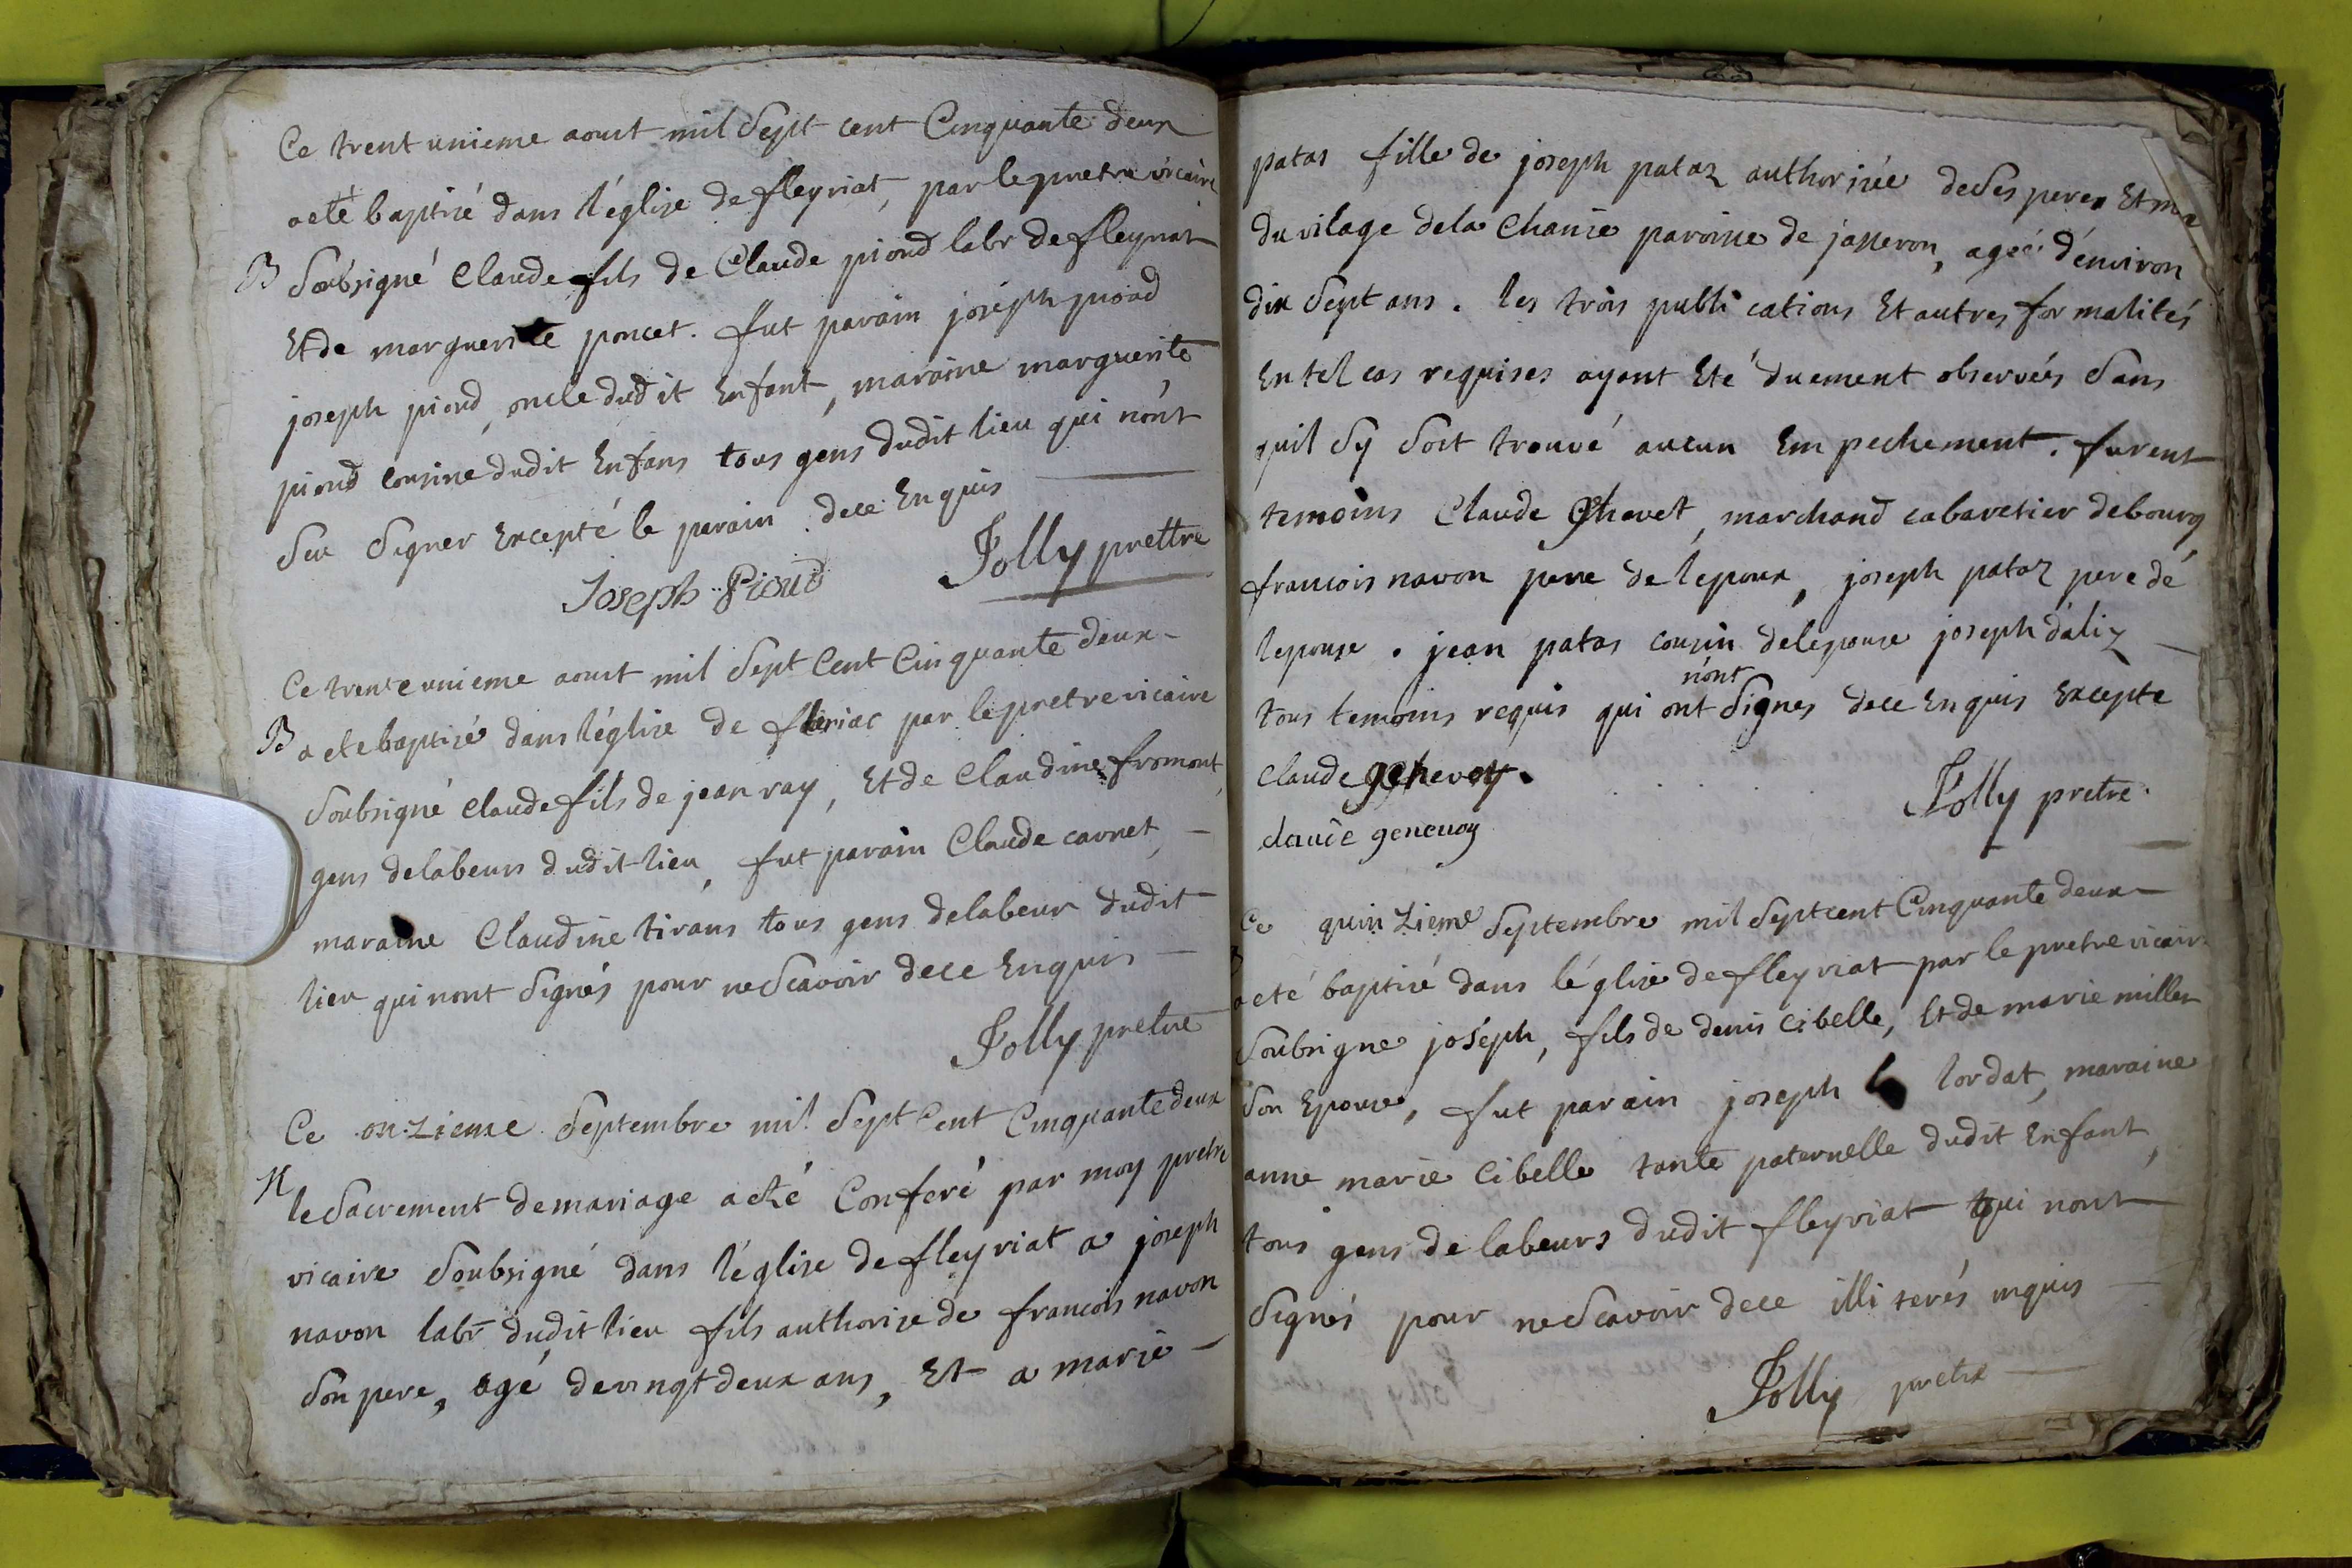 Ce trent unieme aout mil Sept cent Cinquante deux
a eté baptisé dans l'église de fleyriat, par le pretre vicaire
B Soubsigné Claude fils de Claude pioud labr de fleyriat
Et de marguerite poncet. fut parain joseph pioud
joseph pioud, oncle dudit Enfant, maraine marguerite
pioud cousine dudit Enfans tous gens dudit lieu qui n'ont
Seu Signer Excepté le parain. de ce Enquis
Joseph Pioud Jolly prettre
Ce trente unieme aout mil Sept Cent Cinquante deux
B a ete baptisé dans l'église de fleriac par le pretre vicaire
Soubsigné Claude fils de jean ray, Et de Claudine fromont,
gens de labeurs dudit lieu, fut parain Claude carnet,
maraine Claudine tirans tous gens de labeur dudit
lieu qui nont Signés pour ne Scavoir de ce Enquis
Jolly pretre
Ce onzieme Septembre mil Sept Cent Cinquante deux
M le Sacrement de mariage a eté Conferé par moy pretre
vicaire Soubsigné dans l'église de fleyriat a joseph
navon labr dudit lieu fils authorize de francois navon
Son pere, agé de vingt deux ans, Et a marie
patas fille de joseph pataz authorisée de Ses peres Et
du vilage de la Chanie paroisse de jasseron, ageé d'environ
dix Sept ans. les trois publications Et autres formalités
En tel cas requises ayant Eté duement observées Sans
quil Sy Soit trouvé aucun Empechement. furent
temoins Claude Chevet, marchand cabaretier de bourg
francois navon pere de l'epoux, joseph pataz pere de
lepouse. jean patas cousin de lepouse joseph daliz
n'ont
tous temoins requis qui ont Signes de ce Enquis Excepte
claude genevoy.
claude genevoy Jolly pretre.
Ce quinzieme Septembre mil Sept cent Cinquante deux
B a eté baptisé dans l'église de fleyriat par le pretre vicaire
Soubsigne joséph, fils de denis Cibelle, Et de marie miller
Son Epouse, fut parain joseph lordat, maraine
anne marie Cibelle tante paternelle dudit Enfant,
tous gens de labeurs dudit fleyriat qui nont
Signés pour ne Scavoir de ce illiterés inquis
Jolly pretre